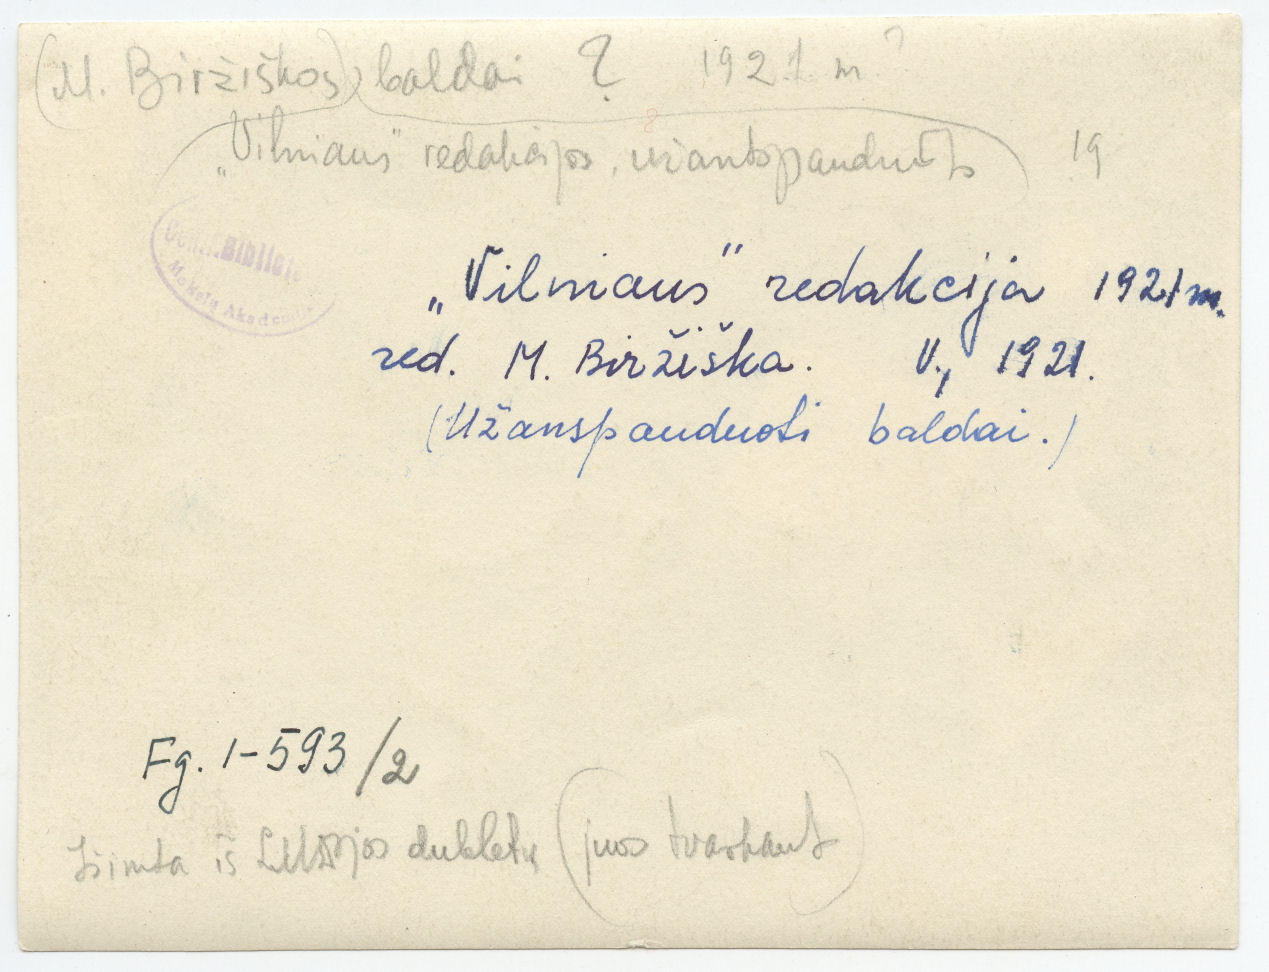 (M. Biržiškos) baldai ? 1921 m?
„Vilniaus" redakcijos, užantspauduoti 19
Centr. Bibliote
Mokslų Akademi
„Vilniaus" redakcija 1921 m.
red. M. Biržiška. V., 1921.
(Užanspauduoti baldai.)
Fg. 1-593/2
Išimta iš dubletų (juos tvarkant)